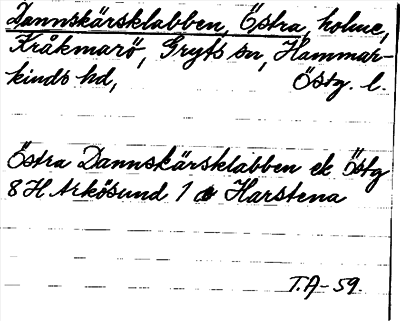 Dannskärsklabben, Östra, holme,
Kråkmarö, Gryts sn, Hammar-
kinds hd, Östg. l.
Östra Dannskärsklabben ek Östg
8H Arkösund 1 d Harstena
T.A-59.